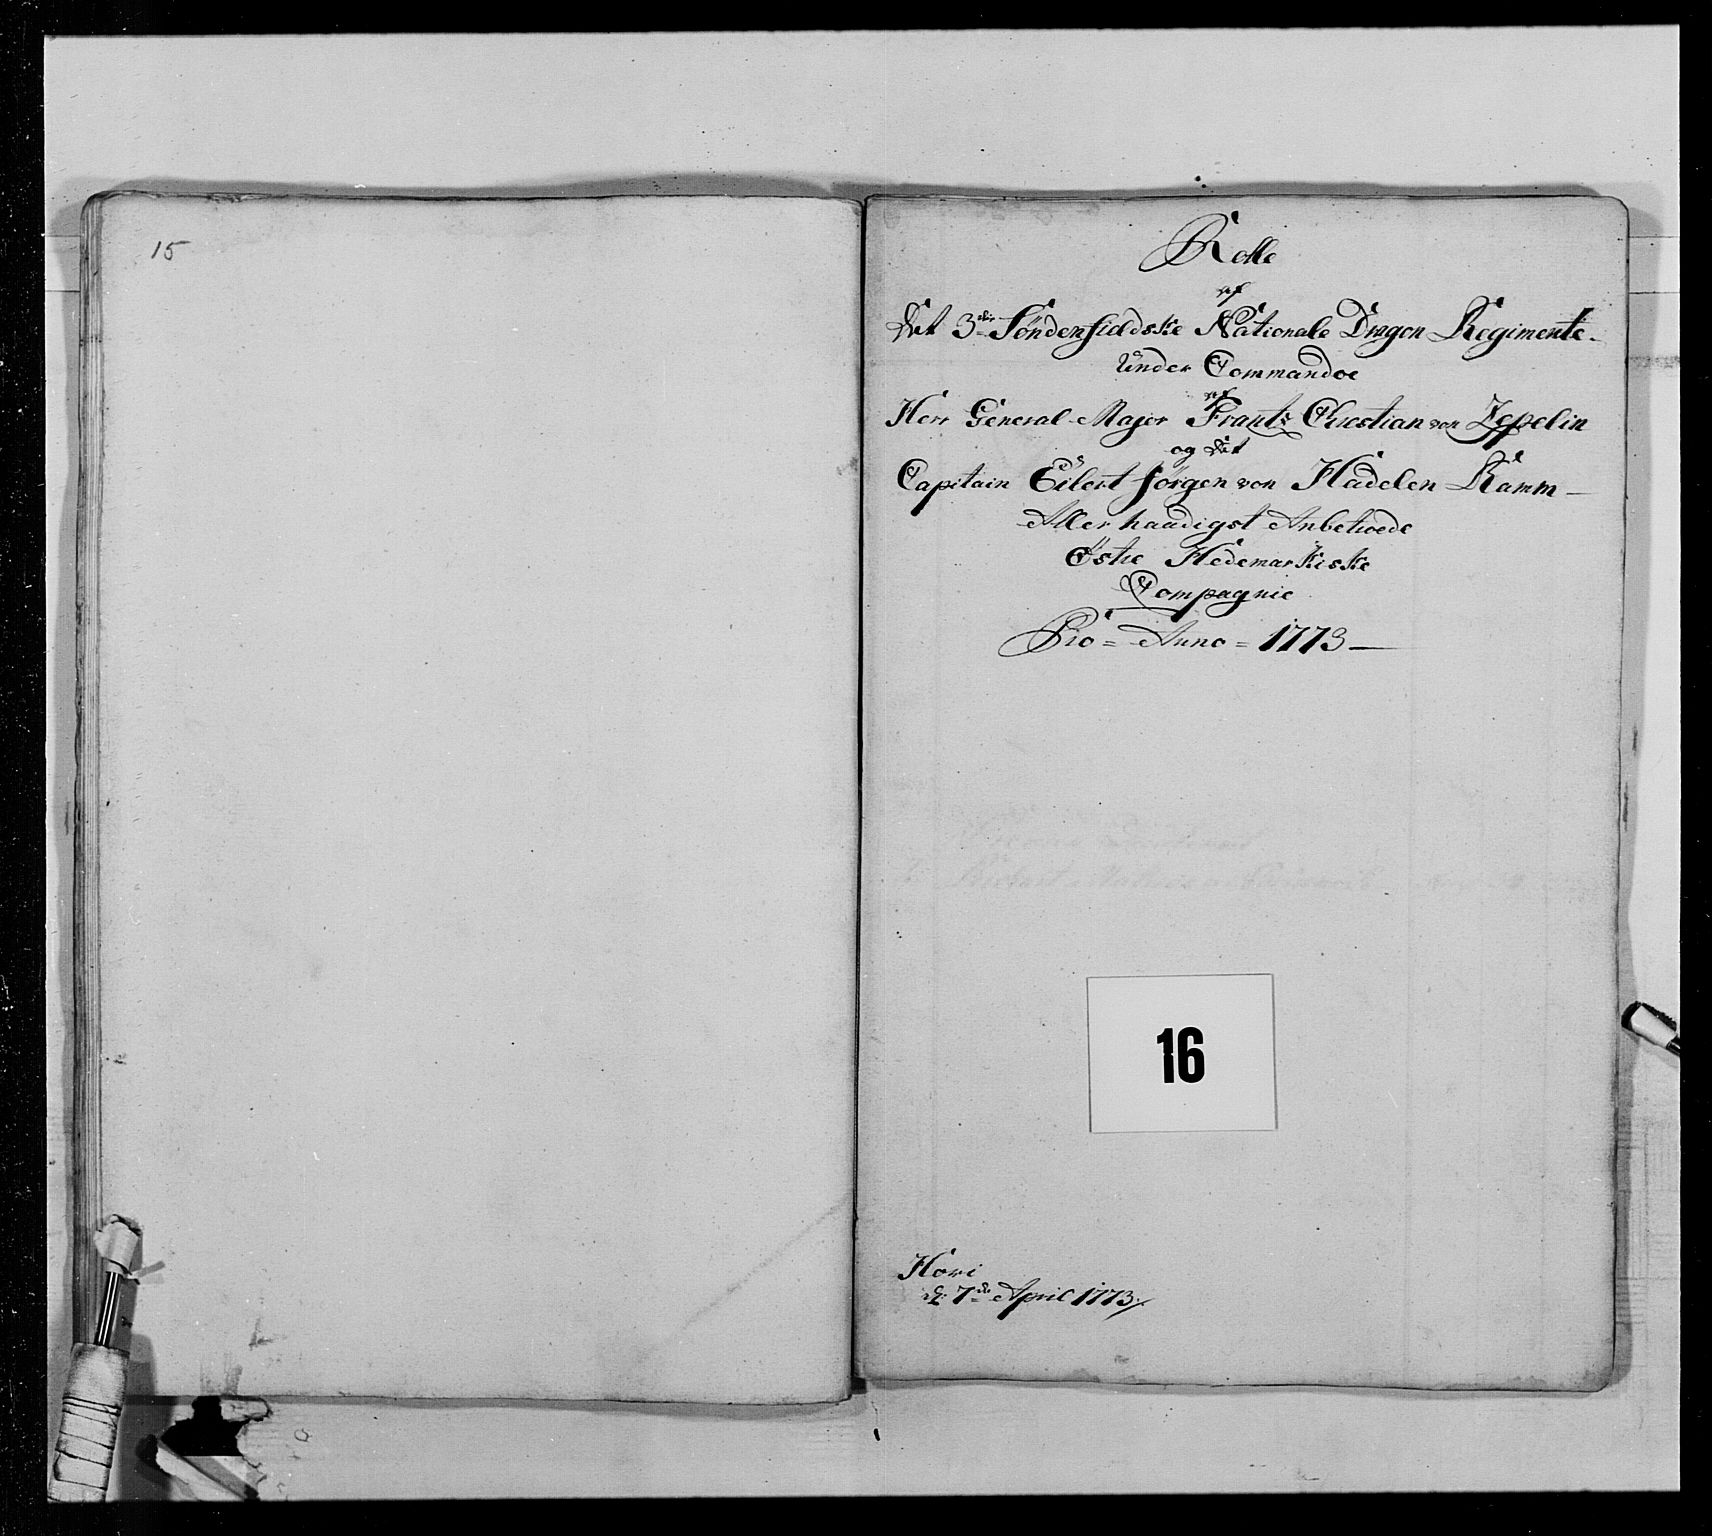 15
Rolle
af
Det 3die Søndenfieldske Nationale Dragon Regimente
Under Commandoe
af
Herr General Major Frants Chrestian von Zepelin
og Det
Capitain Eilert Jørgen von Hadelen Kamm
Allernaadigst Anbetroede
Østre Hedemarkiske
Compagnie
Pro = Anno = 1773
16
Hovi
d: 7de April 1773